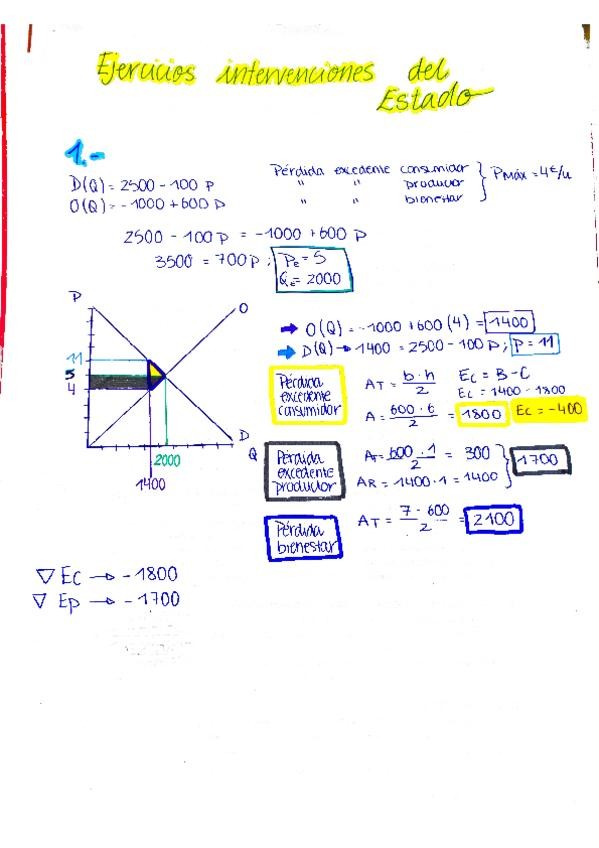 Ejercicios intervenciones del
Estado
1.-
D(Q) = 2500 - 100 P
O(Q) = -1000 + 600 P
Pérdida excedente consumidor
" " productor
" " bienestar
PMáx = 4€/u
2500 - 100 P = -1000 + 600 P
3500 = 700 P ; Pe = 5
Qe = 2000
P
O
11
5
4
D
Q
2000
1400
→ O(Q) = -1000 + 600 (4) = 1400
→ D(Q) → 1400 = 2500 - 100 P ; P = 11
Pérdida
excedente
consumidor
AT = b · h / 2
EC = B - C
EC = 1400 - 1800
A = 600 · 6 / 2 = 1800
EC = -400
Pérdida
excedente
productor
AT = 600 · 1 / 2 = 300
AR = 1400 · 1 = 1400
1700
Pérdida
bienestar
AT = 7 · 600 / 2 = 2100
▽ Ec → - 1800
▽ Ep → - 1700